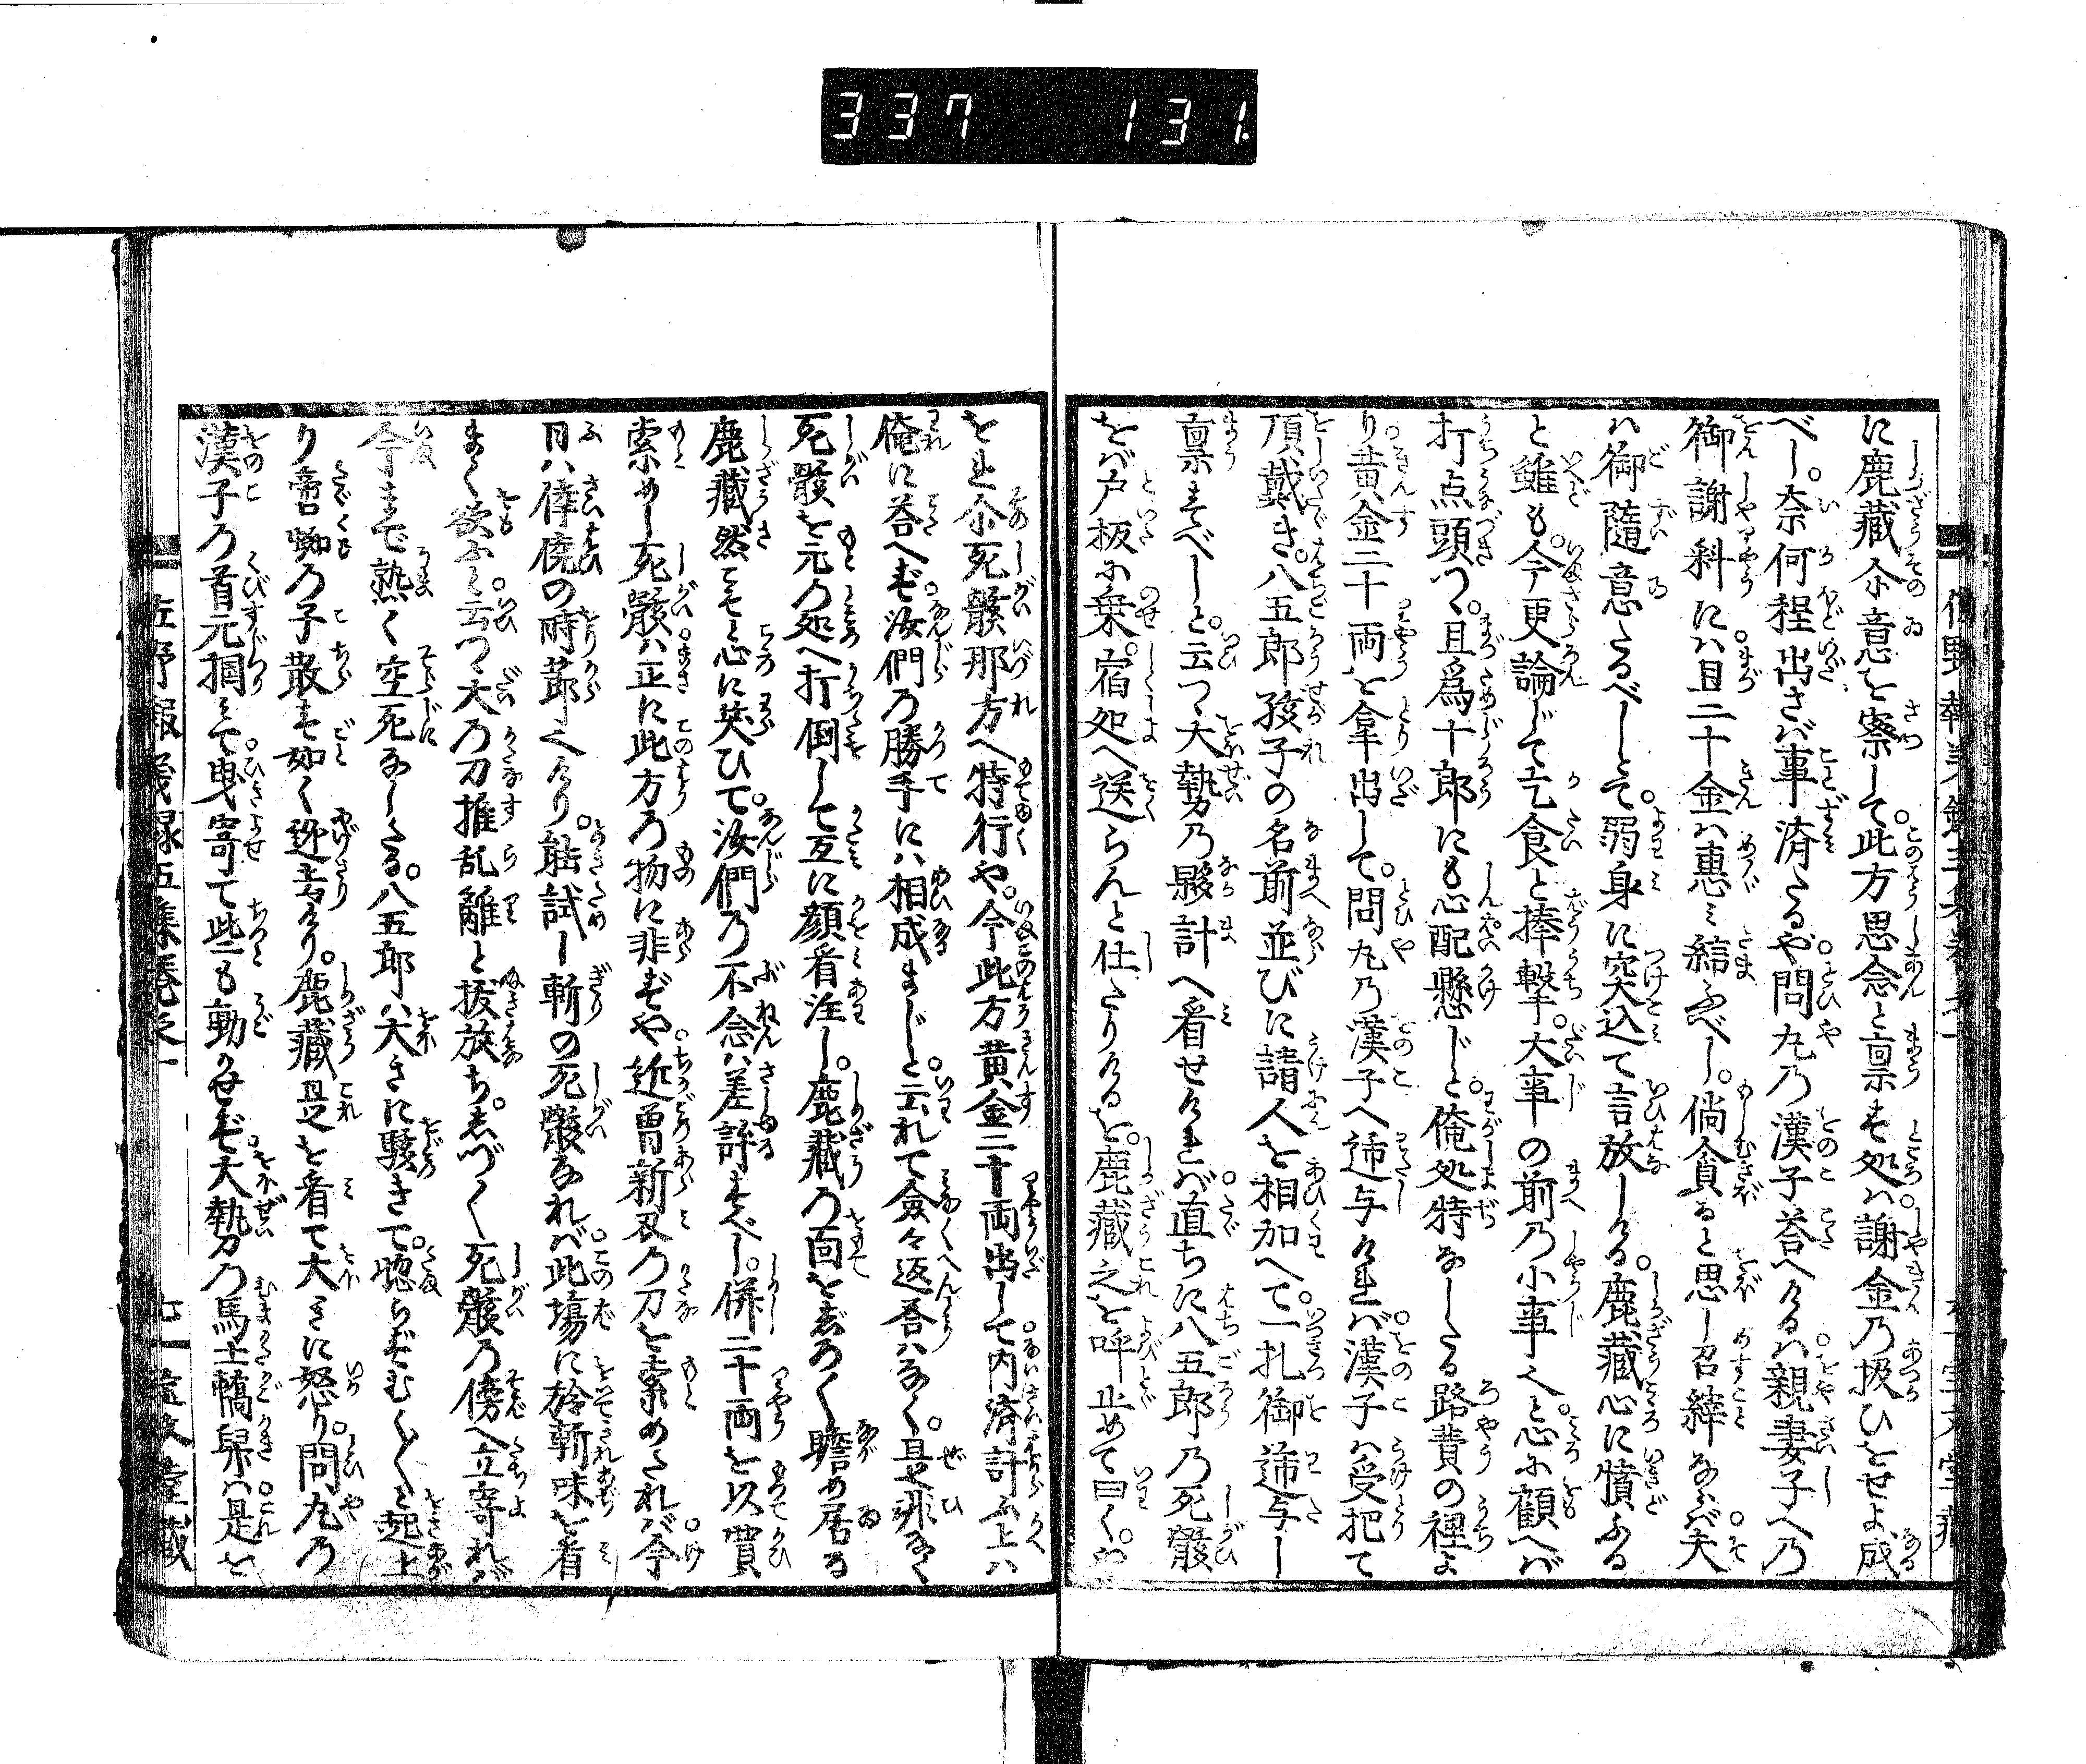 337 131.
に鹿藏尒意を察して。此方思念と禀す処ハ。謝金乃扱ひをせよ成
べし。奈何程出さバ事済たるや。問丸乃漢子答へけるハ。親妻子へ乃
御謝料にハ。且二十金ハ惠ミ給ふべし。倘貪ると思し召縡ならバ夫
ハ御隨意たるべしとて。弱身に突込て言放しける。鹿藏心に憤ふる
と雖も。今更論じて乞食と捧撃。大事の前乃小事也と。心に顧へバ
打点頭つ。且爲十郎にも心配懸じと。俺処特なしたる路費の裡よ
り。黄金二十両を拿出して。問丸乃漢子へ逓与けれバ。漢子ハ受把て
頂戴き。八五郎孩子の名前並びに請人を相加へて。一札御逓与し
禀すべしと。云つ大勢乃夥計へ看せけれバ。直ちに八五郎乃死骸
をバ戸板に乗。宿処へ送らんと仕たりけるを。鹿藏之を呼止めて曰く。や
をれ尒死骸那方へ特行や。今此方黄金二十両出して。内済計ふ上ハ
俺に答へず。汝們乃勝手にハ相成まじと。云れて僉々返答ハなく。是非なく
死骸を元乃処へ打倒して互に顔看注し。鹿藏乃面をしろく瞻め居る
鹿藏然こそと心に笑ひて。汝們乃不念ハ差許すべし。併二十両を以買
索めし死骸ハ。正に此方乃物に非ずや。近曽新刄乃刀を索めたれバ。今
日ハ倖儻の時節也けり。能試し斬の死骸なれバ。此塲に於斬味を看
まく欲ふと。云つ大乃刀推乱離と拔放ち。しづく死骸乃傍へ立寄れバ
今まで熟く空死なしたる。八五郎ハ大きに駭きて。惚らずむくくと起上
り。蜘乃子散す如く迯去けり。鹿藏是を看て大きに怒り。問丸乃
漢子乃首元捆ミて。曳寄て些も動かせず。大勢乃馬士轎舁ハ是を